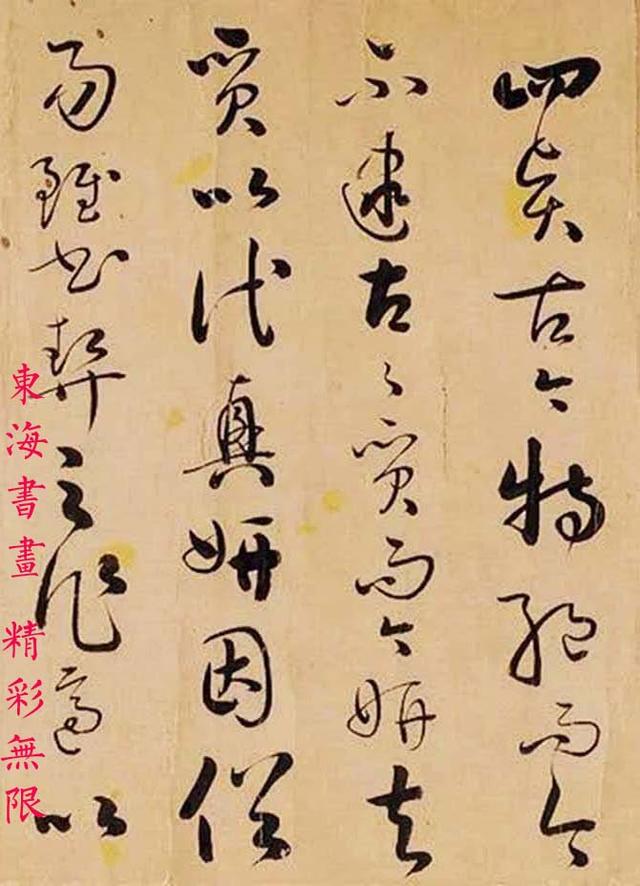 四賢古今特絕而今
不逮古々質而今妍夫
質以代興妍因俗
易雖書契之作適以
東海書畫 精彩無限